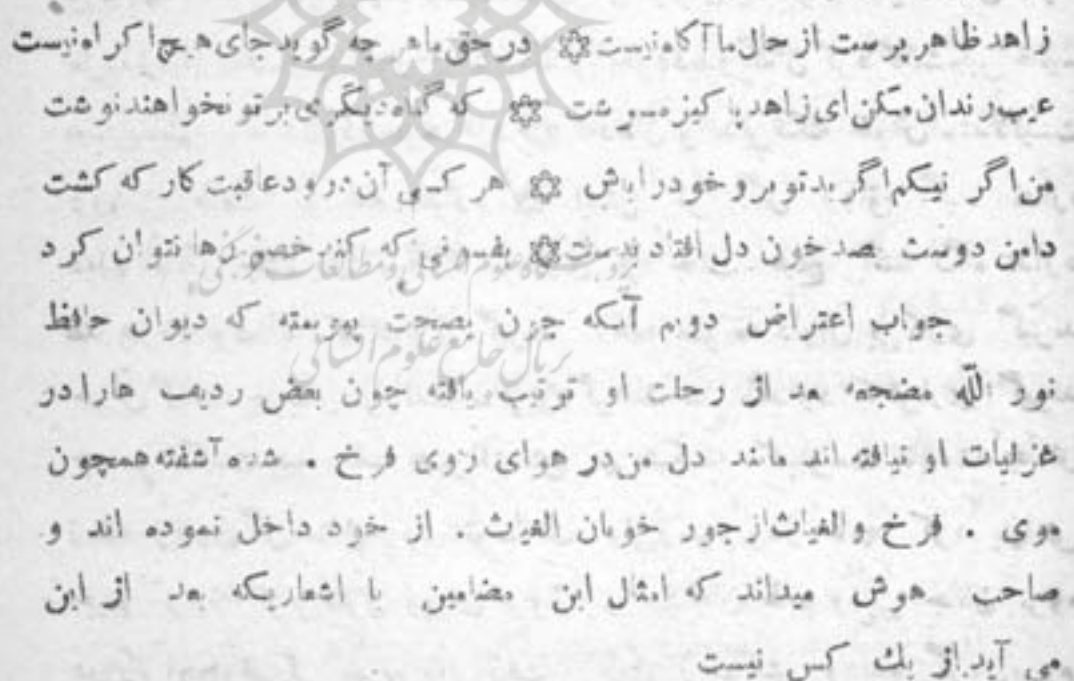 زاهد ظاهر پرست از حال ما آگاه نیست ۞ در حق ما هر چه گوید جای هیچ اکراه نیست
عیب رندان مکن ای زاهد پاکیزه سرشت ۞ که گناه دیگری بر تو نخواهند نوشت
من اگر نیکم اگر بد تو برو خود را باش ۞ هر کسی آن درود عاقبت کار که کشت
دامن دوست بصد خون دل افتاد بدست ۞ بفسونی که کند خصم رها نتوان کرد
جواب اعتراض دوم آنکه چون بصحت پیوسته که دیوان حافظ
نور الله مضجعه بعد از رحلت او ترتیب یافته چون بعض ردیف ها را در
غزلیات او نیافته اند مانند دل من در هوای روی فرخ . شده آشفته همچون
موی . فرخ و الغیاث از جور خوبان الغیاث . از خود داخل نموده اند و
صاحب هوش میداند که امثال این مضامین با اشعاریکه بعد از این
می آید از یك کس نیست
پژوهشگاه علوم انسانی و مطالعات فرهنگی
رتال جامع علوم انسانی